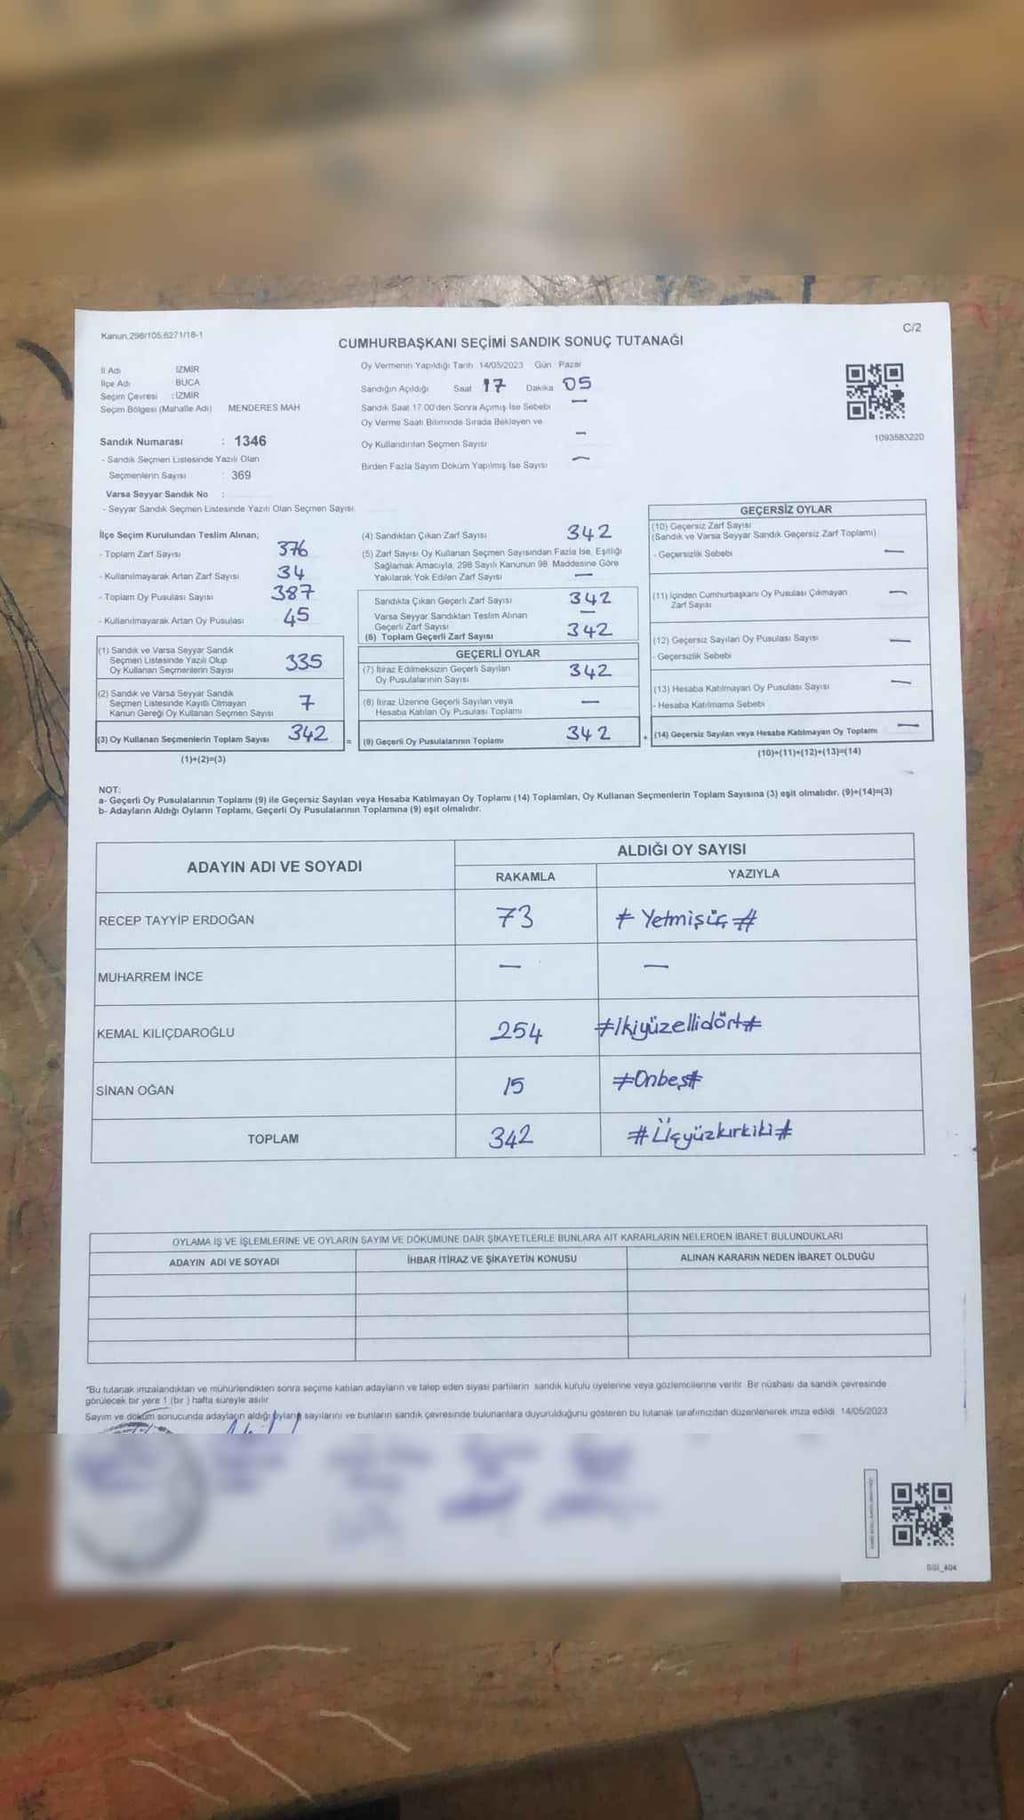 Kanun,298/105,6271/18-1
C/2
CUMHURBAŞKANI SEÇİMİ SANDIK SONUÇ TUTANAĞI
İl Adı İZMİR
İlçe Adı BUCA
Seçim Çevresi : İZMİR
Seçim Bölgesi (Mahalle Adı) MENDERES MAH
Sandık Numarası : 1346
- Sandık Seçmen Listesinde Yazılı Olan
Seçmenlerin Sayısı : 369
Varsa Seyyar Sandık No :
- Seyyar Sandık Seçmen Listesinde Yazılı Olan Seçmen Sayısı
Oy Vermenin Yapıldığı Tarih 14/05/2023 Gün Pazar
Sandığın Açıldığı Saat 17 Dakika 05
Sandık Saat 17.00'den Sonra Açımış İse Sebebi —
Oy Verme Saati Bitiminde Sırada Bekleyen ve
Oy Kullandırılan Seçmen Sayısı —
Birden Fazla Sayım Döküm Yapılmış İse Sayısı —
1093583220
İlçe Seçim Kurulundan Teslim Alınan;
- Toplam Zarf Sayısı 376
- Kullanılmayarak Artan Zarf Sayısı 34
- Toplam Oy Pusulası Sayısı 387
- Kullanılmayarak Artan Oy Pusulası 45
(1) Sandık ve Varsa Seyyar Sandık
Seçmen Listesinde Yazılı Olup
Oy Kullanan Seçmenlerin Sayısı 335
(2) Sandık ve Varsa Seyyar Sandık
Seçmen Listesinde Kayıtlı Olmayan
Kanun Gereği Oy Kullanan Seçmen Sayısı 7
(3) Oy Kullanan Seçmenlerin Toplam Sayısı 342
(1)+(2)=(3)
(4) Sandıktan Çıkan Zarf Sayısı 342
(5) Zarf Sayısı Oy Kullanan Seçmen Sayısından Fazla İse, Eşitliği
Sağlamak Amacıyla, 298 Sayılı Kanunun 98. Maddesine Göre
Yakılarak Yok Edilen Zarf Sayısı —
Sandıkta Çıkan Geçerli Zarf Sayısı 342
Varsa Seyyar Sandıktan Teslim Alınan
Geçerli Zarf Sayısı —
(6) Toplam Geçerli Zarf Sayısı 342
GEÇERLİ OYLAR
(7) İtiraz Edilmeksizin Geçerli Sayılan
Oy Pusulalarının Sayısı 342
(8) İtiraz Üzerine Geçerli Sayılan veya
Hesaba Katılan Oy Pusulası Toplamı —
= (9) Geçerli Oy Pusulalarının Toplamı 342
GEÇERSİZ OYLAR
(10) Geçersiz Zarf Sayısı
(Sandık ve Varsa Seyyar Sandık Geçersiz Zarf Toplamı)
- Geçersizlik Sebebi —
(11) İçinden Cumhurbaşkanı Oy Pusulası Çıkmayan
Zarf Sayısı —
(12) Geçersiz Sayılan Oy Pusulası Sayısı
- Geçersizlik Sebebi —
(13) Hesaba Katılmayan Oy Pusulası Sayısı
- Hesaba Katılmama Sebebi —
+ (14) Geçersiz Sayılan veya Hesaba Katılmayan Oy Toplamı —
(10)+(11)+(12)+(13)=(14)
NOT:
a- Geçerli Oy Pusulalarının Toplamı (9) ile Geçersiz Sayılan veya Hesaba Katılmayan Oy Toplamı (14) Toplamları, Oy Kullanan Seçmenlerin Toplam Sayısına (3) eşit olmalıdır. (9)+(14)=(3)
b- Adayların Aldığı Oyların Toplamı, Geçerli Oy Pusulalarının Toplamına (9) eşit olmalıdır.
ADAYIN ADI VE SOYADI
ALDIĞI OY SAYISI
RAKAMLA YAZIYLA
RECEP TAYYİP ERDOĞAN 73 # Yetmişüç #
MUHARREM İNCE — —
KEMAL KILIÇDAROĞLU 254 #İkiyüzellidört#
SİNAN OĞAN 15 #Onbeş#
TOPLAM 342 #Üçyüzkırkiki#
OYLAMA İŞ VE İŞLEMLERİNE VE OYLARIN SAYIM VE DÖKÜMÜNE DAİR ŞİKAYETLERLE BUNLARA AİT KARARLARIN NELERDEN İBARET BULUNDUKLARI
ADAYIN ADI VE SOYADI İHBAR İTİRAZ VE ŞİKAYETİN KONUSU ALINAN KARARIN NEDEN İBARET OLDUĞU
"Bu tutanak imzalandıktan ve mühürlendikten sonra seçime katılan adayların ve talep eden siyasi partilerin sandık kurulu üyelerine veya gözlemcilerine verilir. Bir nüshası da sandık çevresinde
görülecek bir yere 1 (bir ) hafta süreyle asılır
Sayım ve döküm sonucunda adayların aldığı oyların sayılarını ve bunların sandık çevresinde bulunanlara duyurulduğunu gösteren bu tutanak tarafımızdan düzenlenerek imza edildi. 14/05/2023